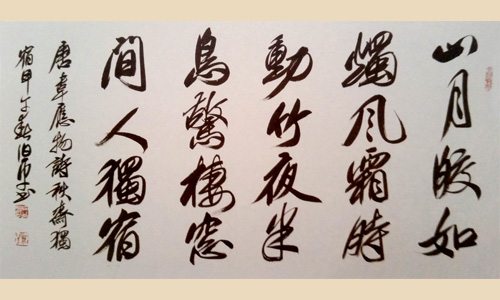 山月皎如
燭風霜時
動竹夜半
鳥驚棲窓
間人獨宿
唐韋應物詩秋齋獨
宿甲午春